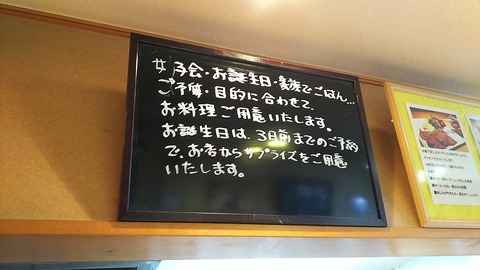 女子会・お誕生日・家族でごはん…
ご予算・目的に合わせて、
お料理ご用意いたします。
お誕生日は、3日前までのご予約
で、お店からサプライズをご用意
いたします。